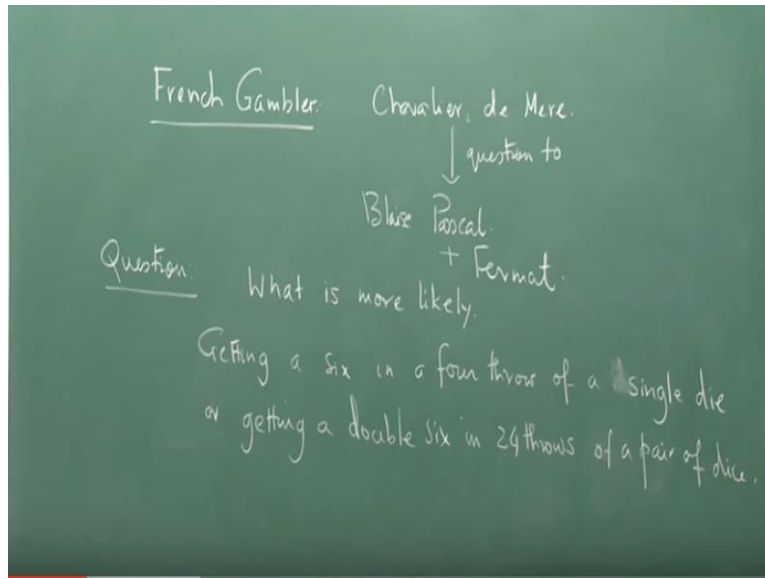 French Gambler: Chavalier, de Mere.
question to
Blaise Pascal.
+ Fermat.
Question:
What is more likely.
Getting a six in a four throw of a single die
or getting a double six in 24 throws of a pair of dice.